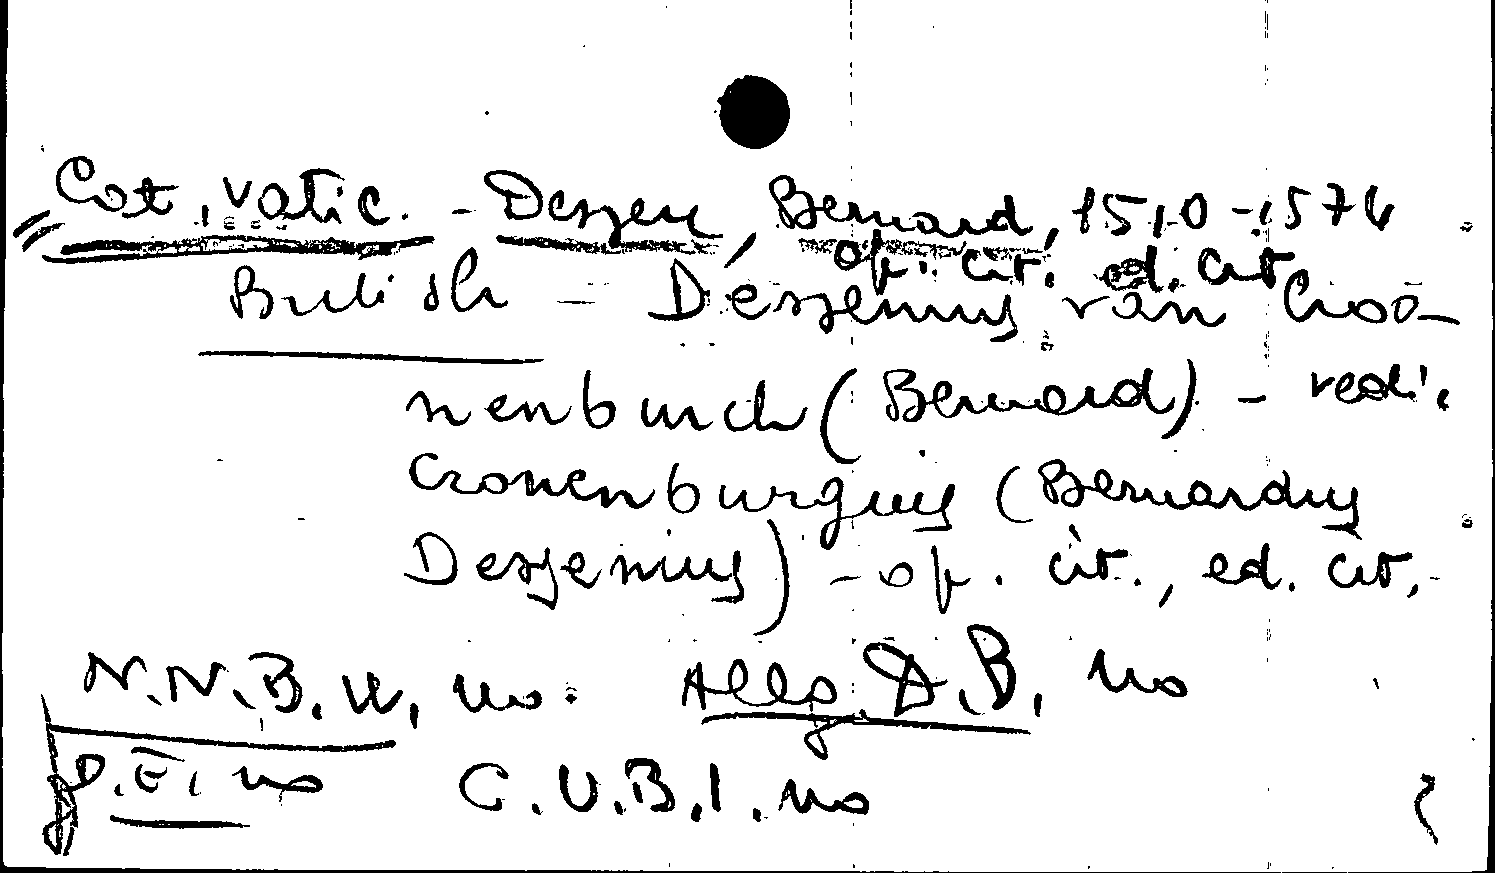 Cat. vatic. - Dessen, Bernard, 1510-1574
op. cit. ed. cit
British - Dessenius van Croo-
nenburch (Bernard) - vedi:
Cronenburgius (Bernardus
Dessenius) - op. cit., ed. cit.
N.N.B.W, no. Allg. D.B. no
D.E. no C.U.B.I. no